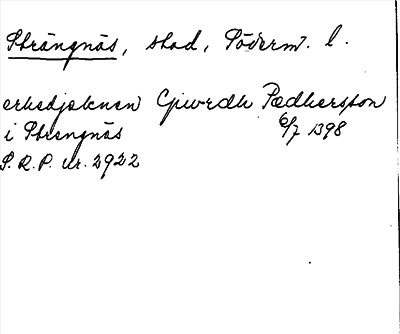 Strängnäs, stad, Söderm. l.
erkedjeknen Gjurdh Pædhersson
i Strengnäs 6/7 1398
S.R.P. nr. 2922